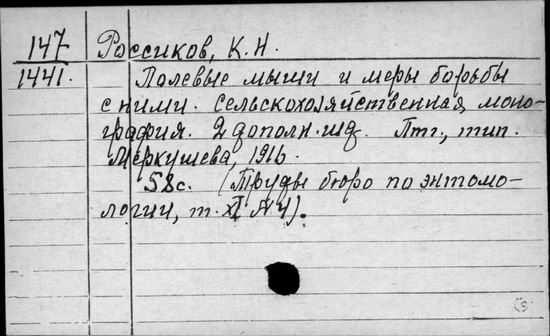 147 Россиков, К.Н.
1441. Полевые мыши и меры борьбы
с ними. Сельскохозяйственная моно-
графия. 2 дополн. изд. Птг., тип.
Меркушева, 1916.
58с. (Труды бюро по энтомо-
логии, т. XI №4).